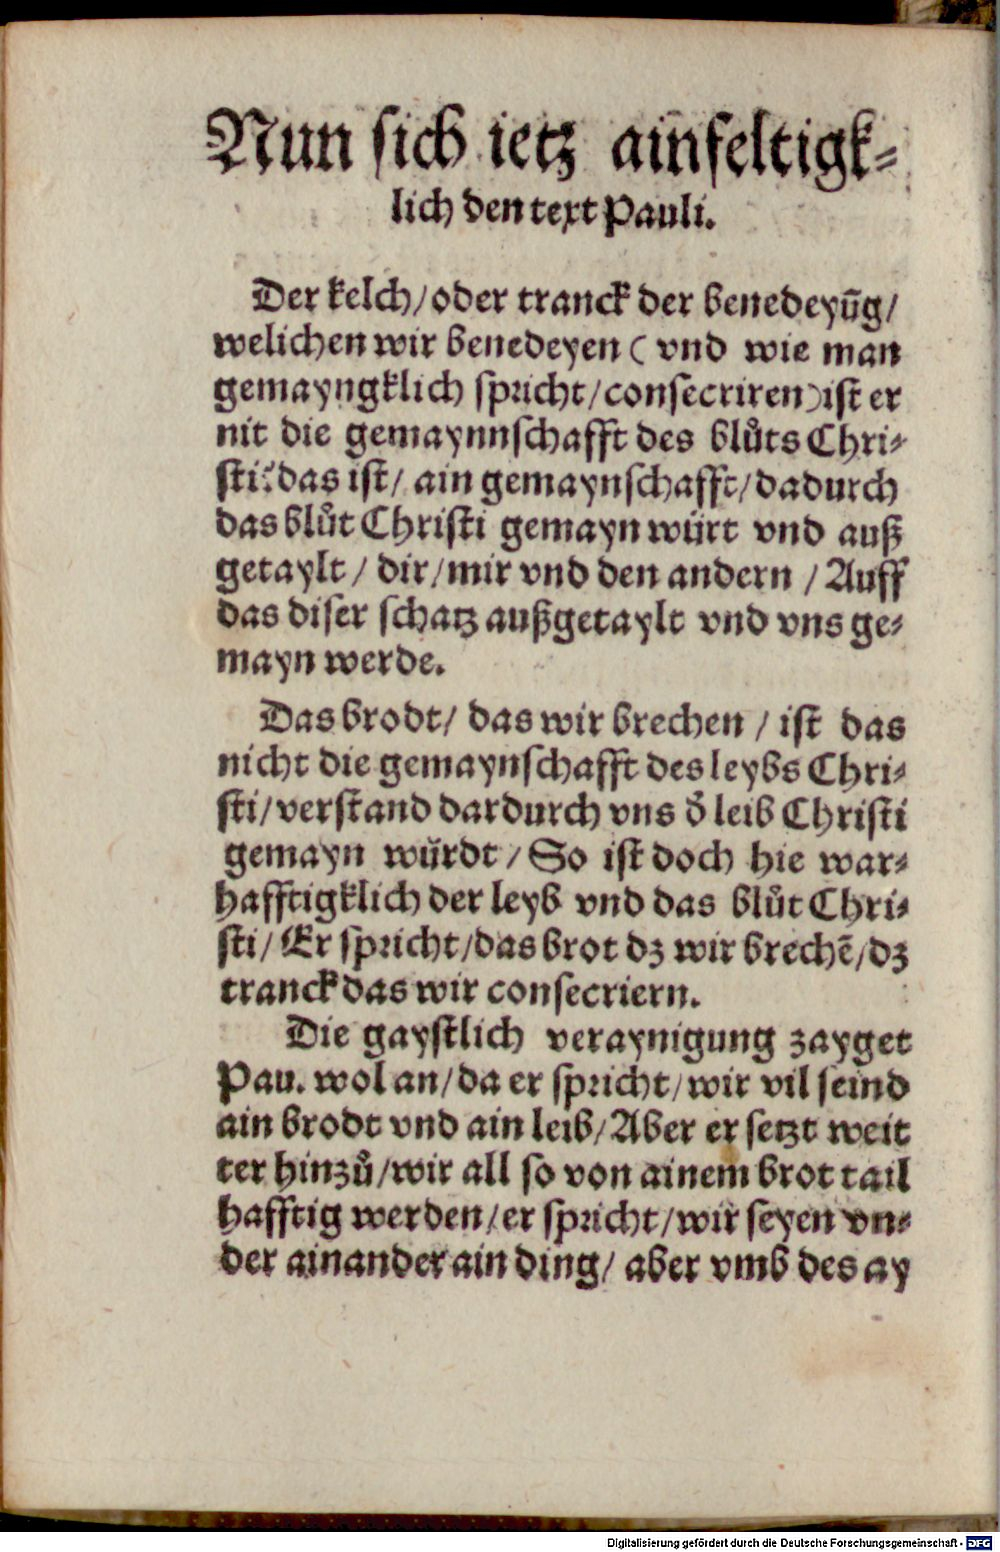 Nun sich ietz ainfeltigk-
lich den text Pauli.
Der kelch/oder tranck der benedeyūg/
welichen wir benedeyen (vnd wie man
gemayngklich spricht/consecriren) ist er
nit die gemaynnschafft des blůts Chri-
sti? das ist/ ain gemaynschafft/dadurch
das blůt Christi gemayn würt vnd auß
getaylt/ dir/mir vnd den andern / Auff
das diser schatz außgetaylt vnd vns ge-
mayn werde.
Das brodt/ das wir brechen / ist das
nicht die gemaynschafft des leybs Chri-
sti/verstand dardurch vns d̓ leib Christi
gemayn würdt / So ist doch hie war-
hafftigklich der leyb vnd das blůt Chri-
sti/ Er spricht/das brot dz wir brechē/dz
tranck das wir consecriern.
Die gaystlich veraynigung zayget
Pau. wol an/da er spricht/wir vil seind
ain brodt vnd ain leib/Aber er setzt weit
ter hinzů/wir all so von ainem brot tail
hafftig werden/er spricht/wir seyen vn-
der ainander ain ding/ aber vmb des ay
Digitalisierung gefördert durch die Deutsche Forschungsgemeinschaft - DFG